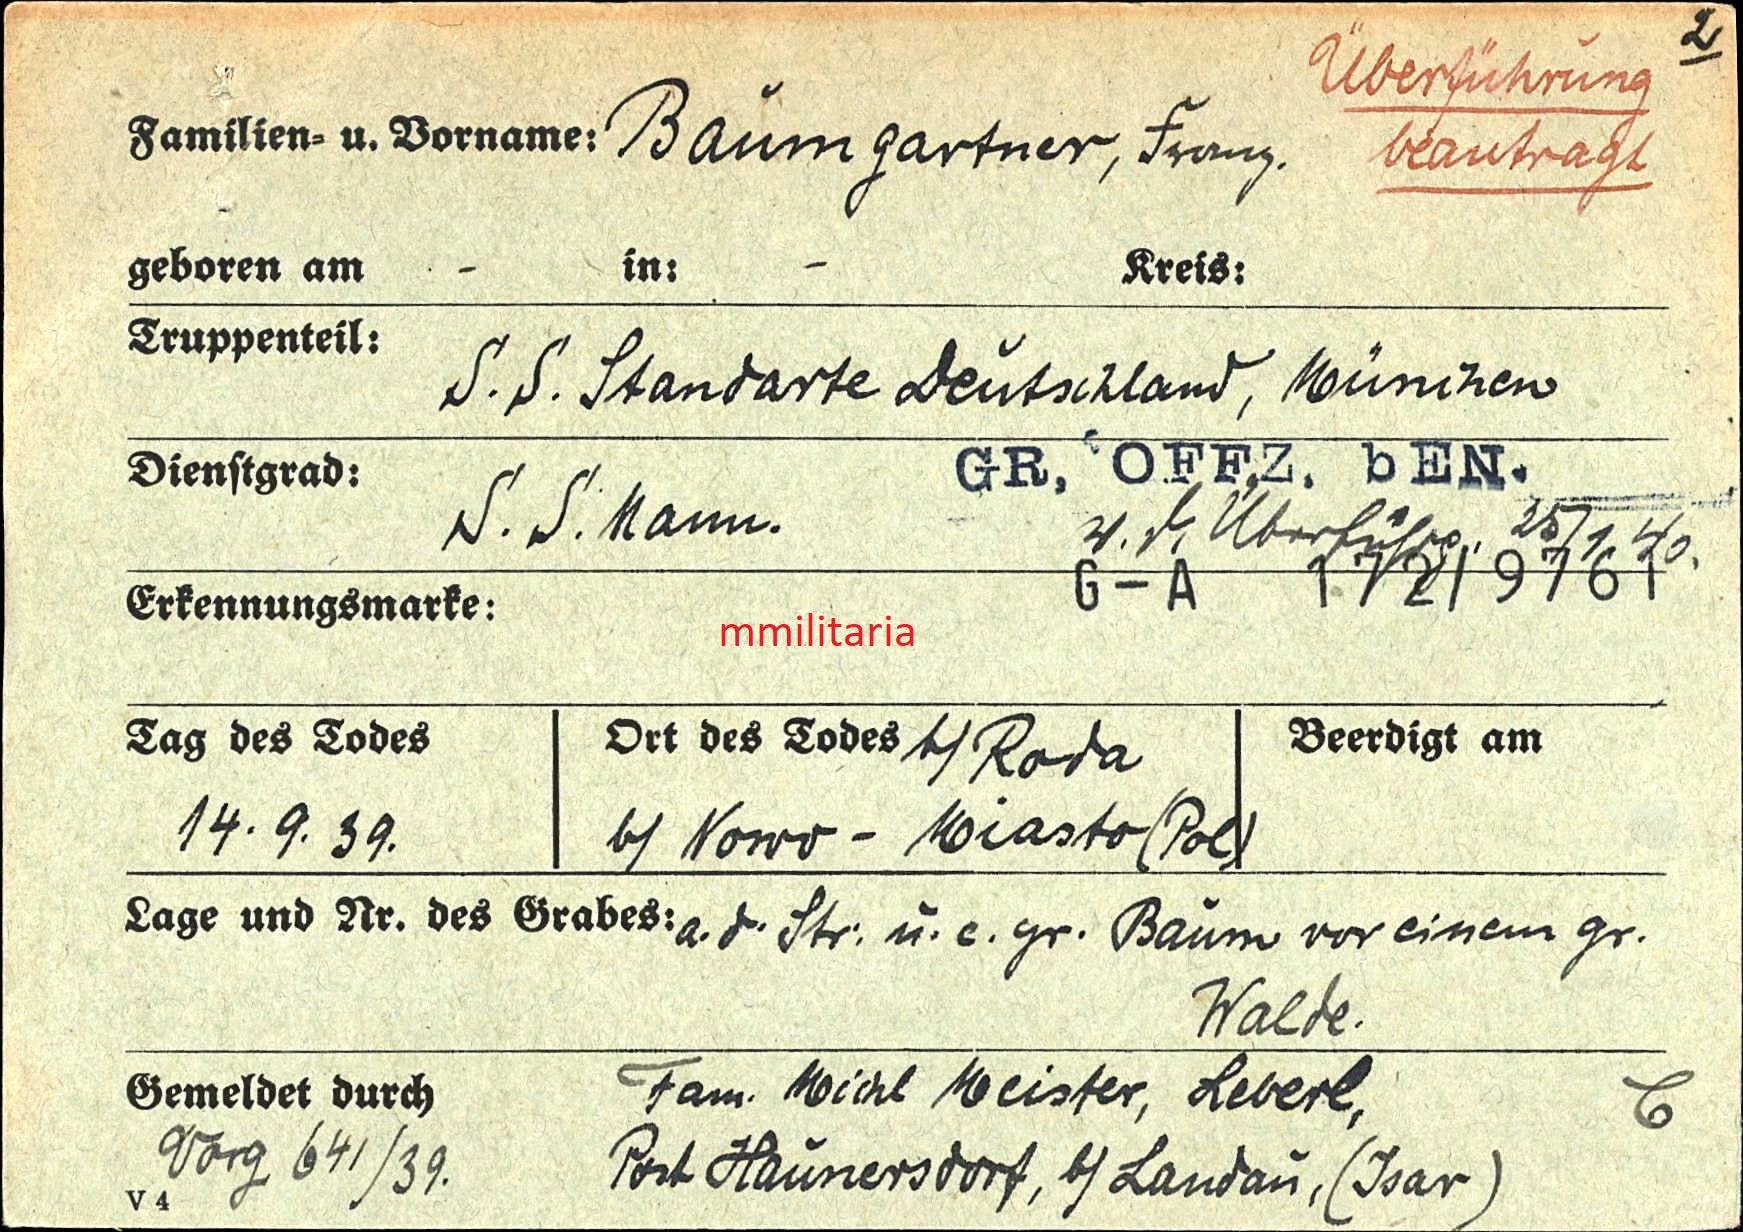 2
Überführung
beantragt
Familien- u. Vorname: Baumgartner, Franz.
geboren am - in: - Kreis:
Truppenteil: S.S. Standarte Deutschland, München
Dienstgrad: S.S. Mann.
GR, OFFZ. bEN.
w. d. Überführg. 25/1 40.
G-A 172/9761
Erkennungsmarke:
mmilitaria
Tag des Todes
14. 9. 39.
Ort des Todes b/ Roda
b/ Nowo - Miasto (Pol)
Beerdigt am
Lage und Nr. des Grabes: a. d. Str. u. e. gr. Baum vor einem gr.
Walde.
Gemeldet durch Fam. Michl Meister, Leberl,
Vorg 641/39. Post Haunersdorf, b/ Landau, (Isar)
V 4